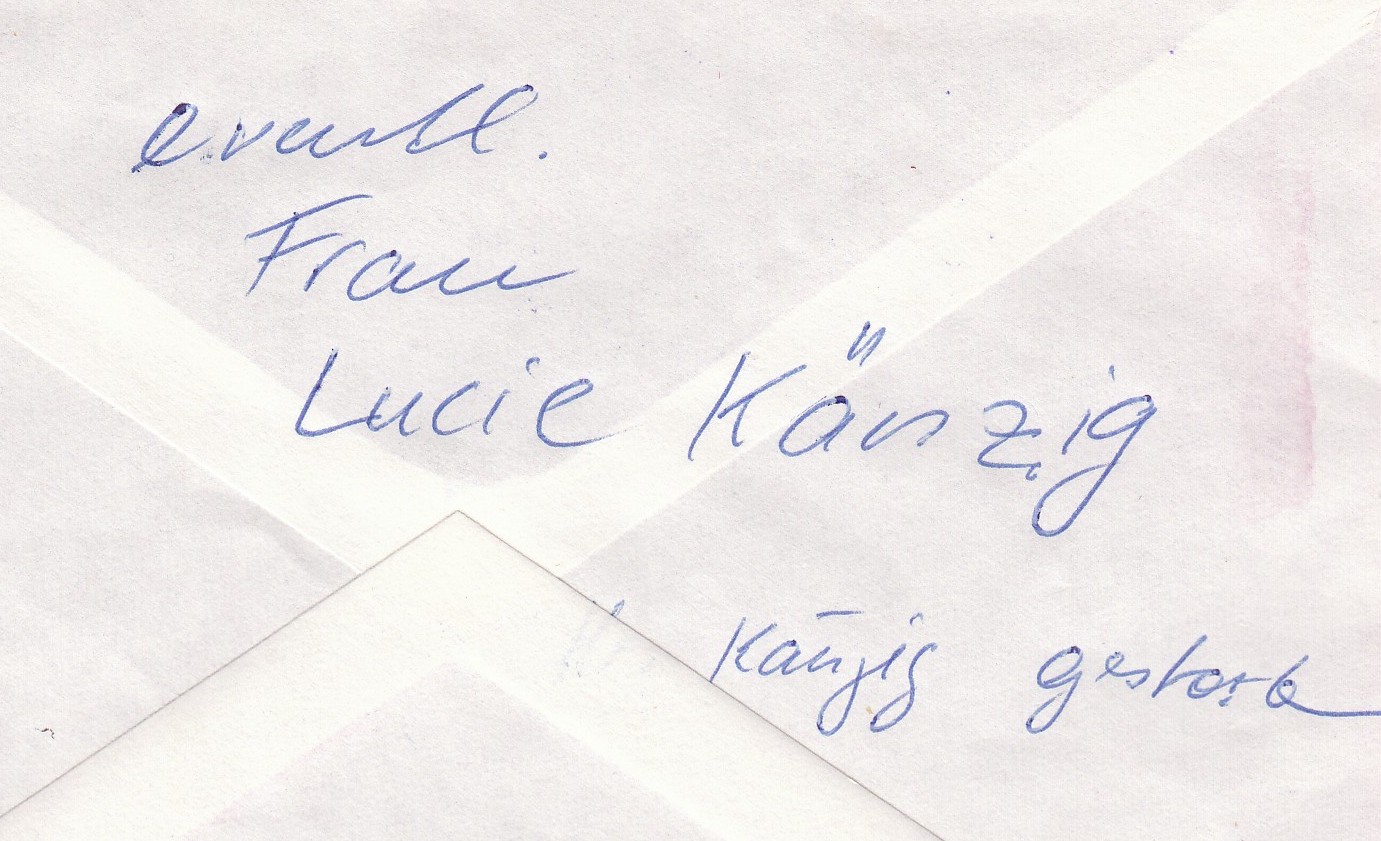 eventl.
Frau
Lucie Känzig
Känzig gestorb